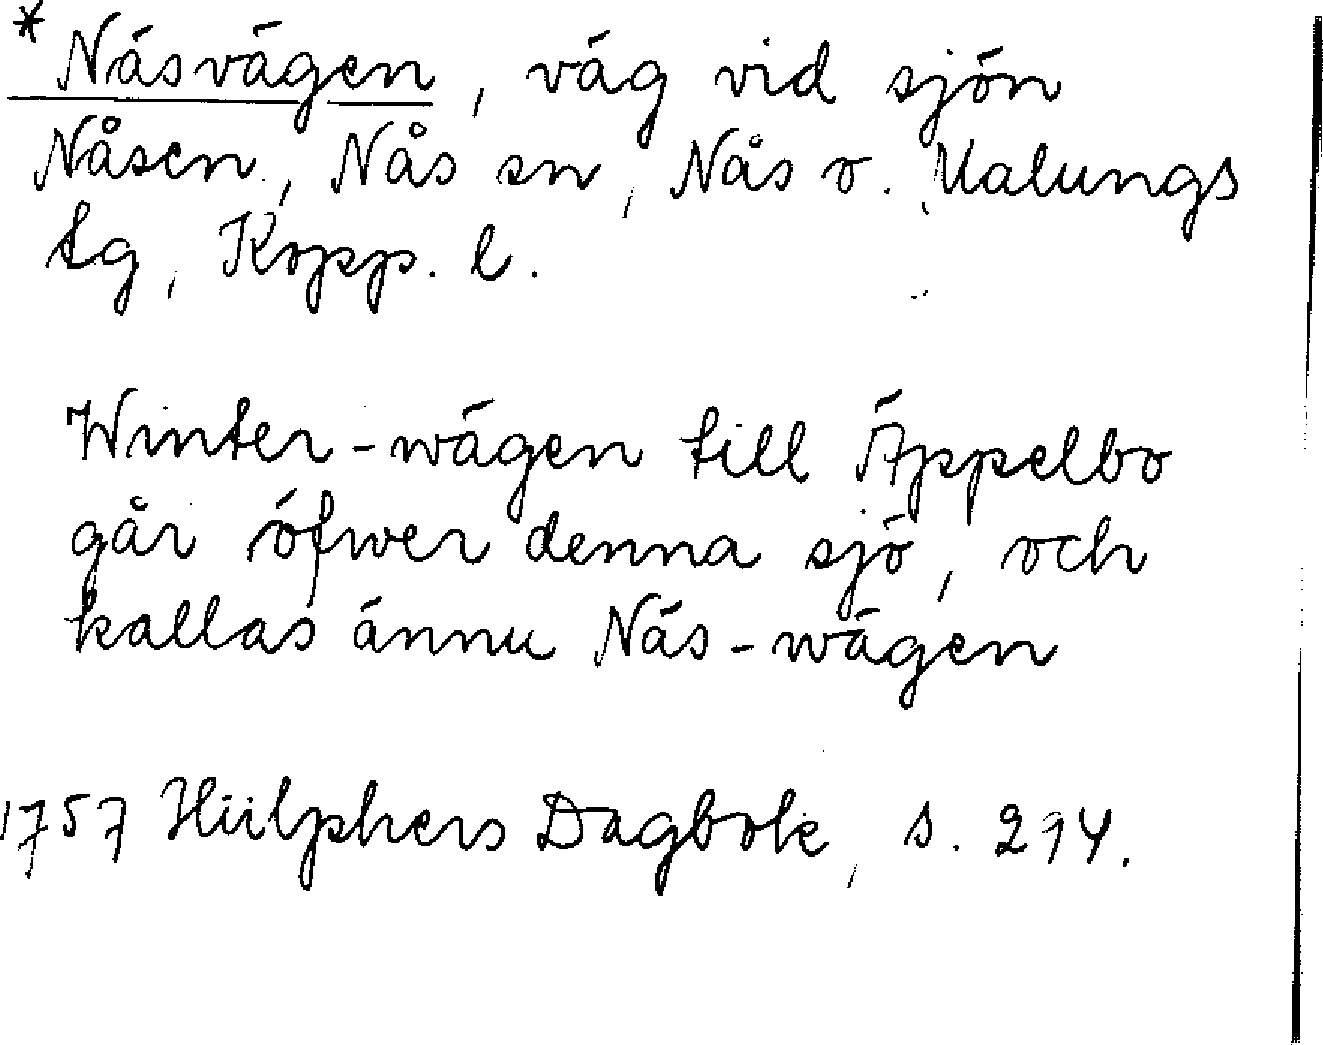 * Näsvägen, väg vid sjön
Nåsen, Nås sn, Nås o. Malungs
tg, Kopp. l.
Winter-wägen till Äppelbo
går öfwer denna sjö, och
kallas ännu Näs-wägen
1757 Hülphers Dagbok, s. 294.